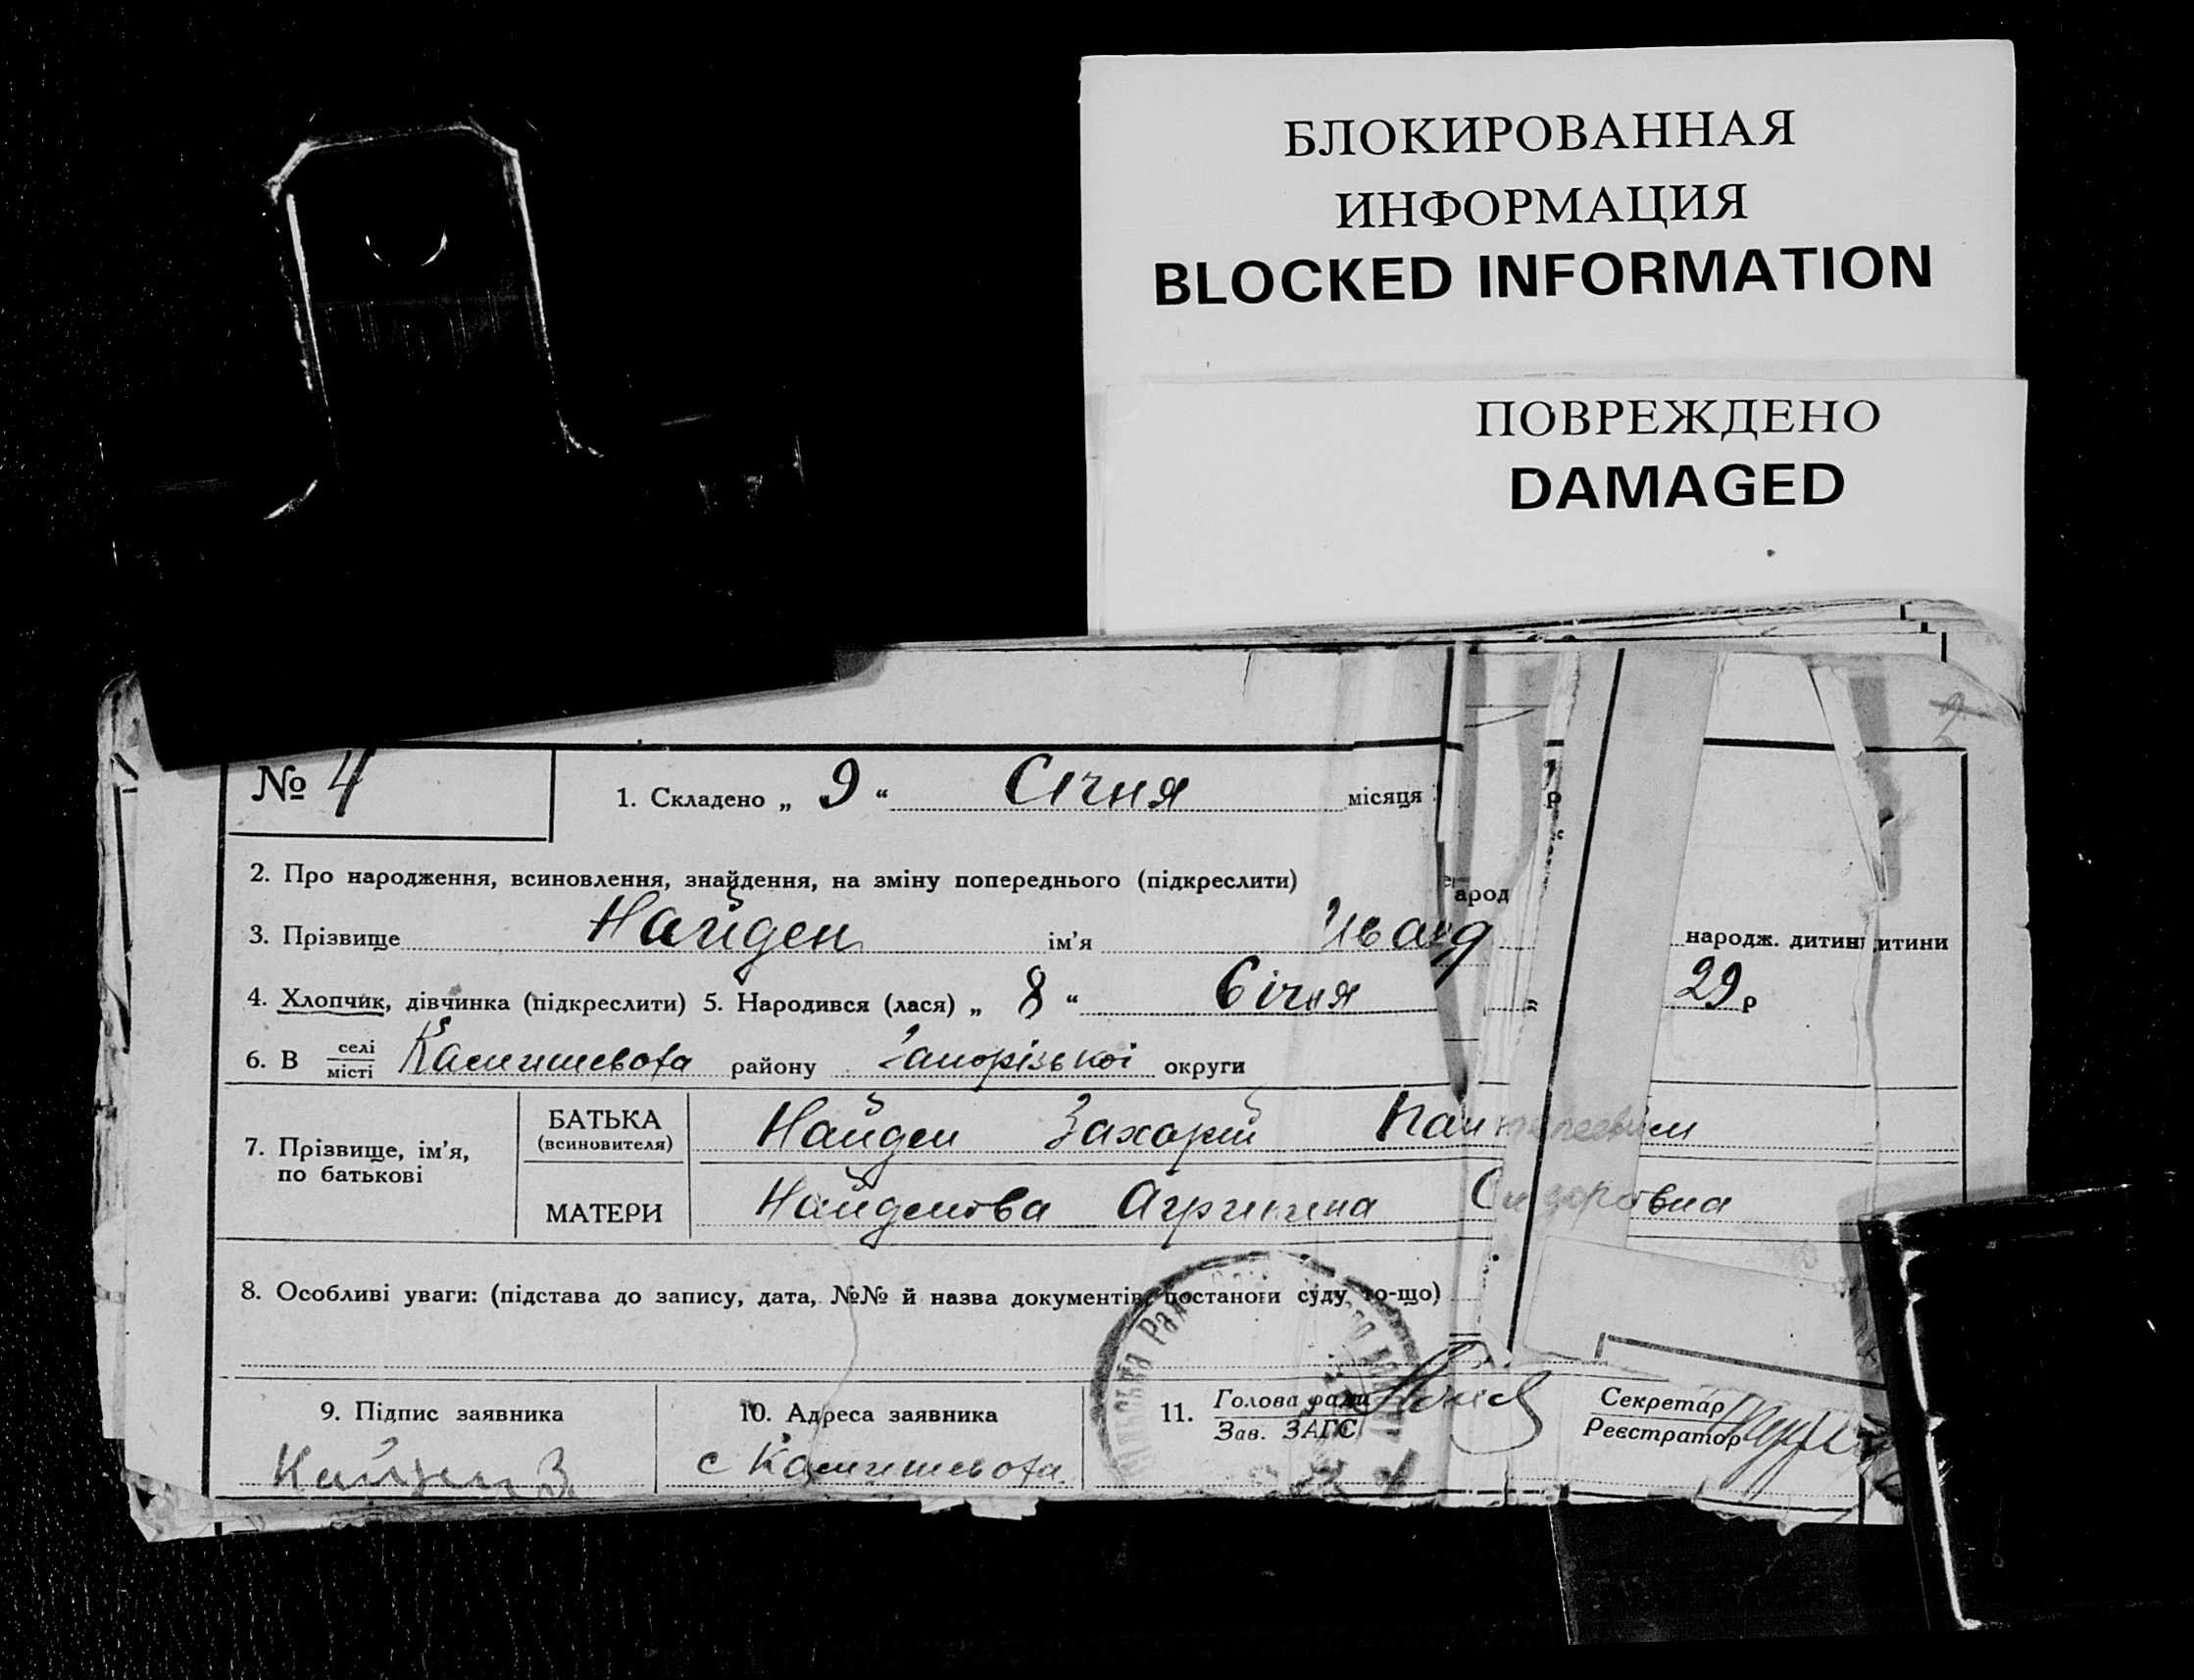 БЛОКИРОВАННАЯ
ИНФОРМАЦИЯ
BLOCKED INFORMATION
ПОВРЕЖДЕНО
DAMAGED
2
№ 4
1. Складено „ 9 “ Січня місяця р
2. Про народження, всиновлення, знайдення, на зміну попереднього (підкреслити) арод
3. Прізвище Найден ім'я народж. дитин итини
4. Хлопчик, дівчинка (підкреслити) 5. Народився (лася) „ 8 “ Січня 29 р
6. В селі місті Камишевоха району Запорізької округи
7. Прізвище, ім'я, по батькові
БАТЬКА (всиновителя) Найден Захарій
МАТЕРИ Найденова Агрипина Сидоровна
8. Особливі уваги: (підстава до запису, дата, №№ й назва документів, постанови суду, то-що)
9. Підпис заявника
10. Адреса заявника
11. Голова ради Зав. ЗАГС
Секретар Реєстратор
Найден З
с Камишевоха